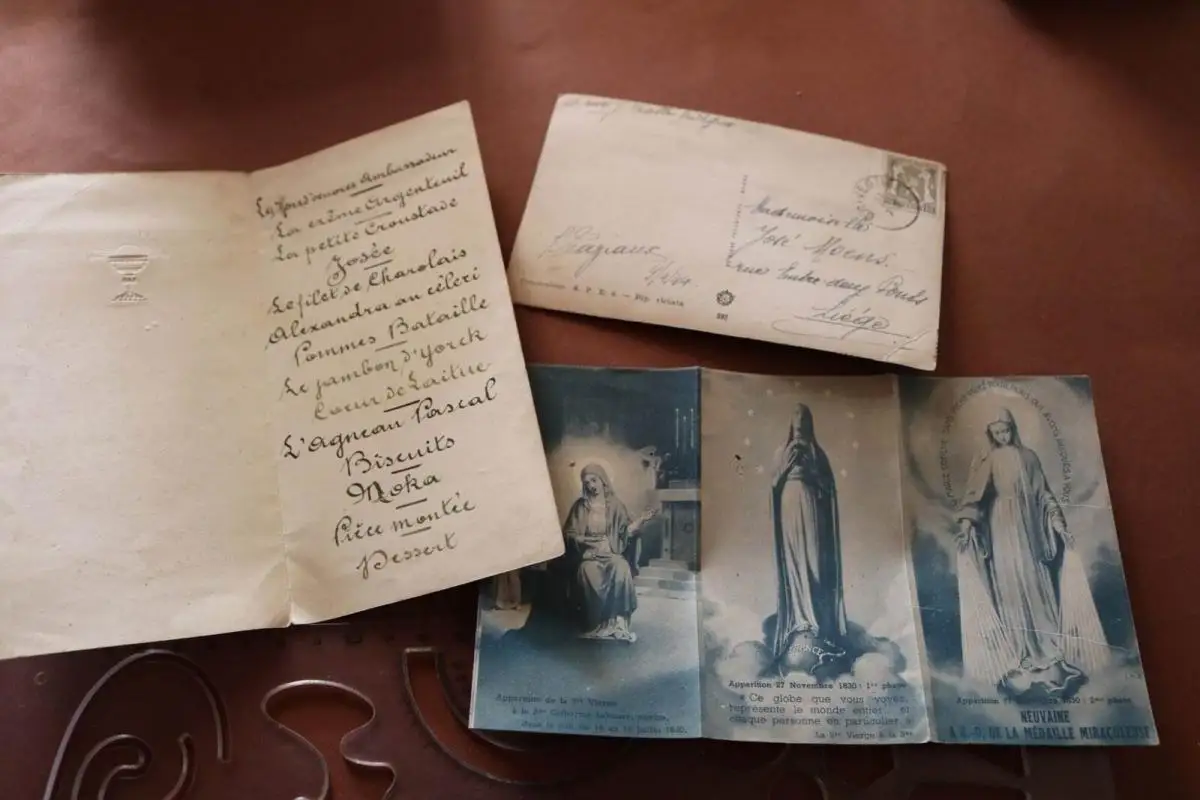 Les Hors d'œuvres Ambassadeur
La crème Argenteuil
La petite Croustade
Josée
Le filet de Charolais
Alexandra au céleri
Pommes Bataille
Le jambon d'Yorck
Coeur de Laitue
L'Agneau Pascal
Biscuits
Moka
Pièce montée
Dessert
Mademoiselle
José Moens.
rue Entre deux Ponts
Liége
597
Apparition de la Ste Vierge
à la Sœur Catherine Labouré, novice,
dans la nuit du 18 au 19 juillet 1830.
FRANCE
Apparition 27 Novembre 1830 : 1re phase
« Ce globe que vous voyez
représente le monde entier et
chaque personne en particulier »
La Ste Vierge à la Sr
Apparition 27 Novembre 1830 : 2me phase
NEUVAINE
A N.-D. DE LA MÉDAILLE MIRACULEUSE